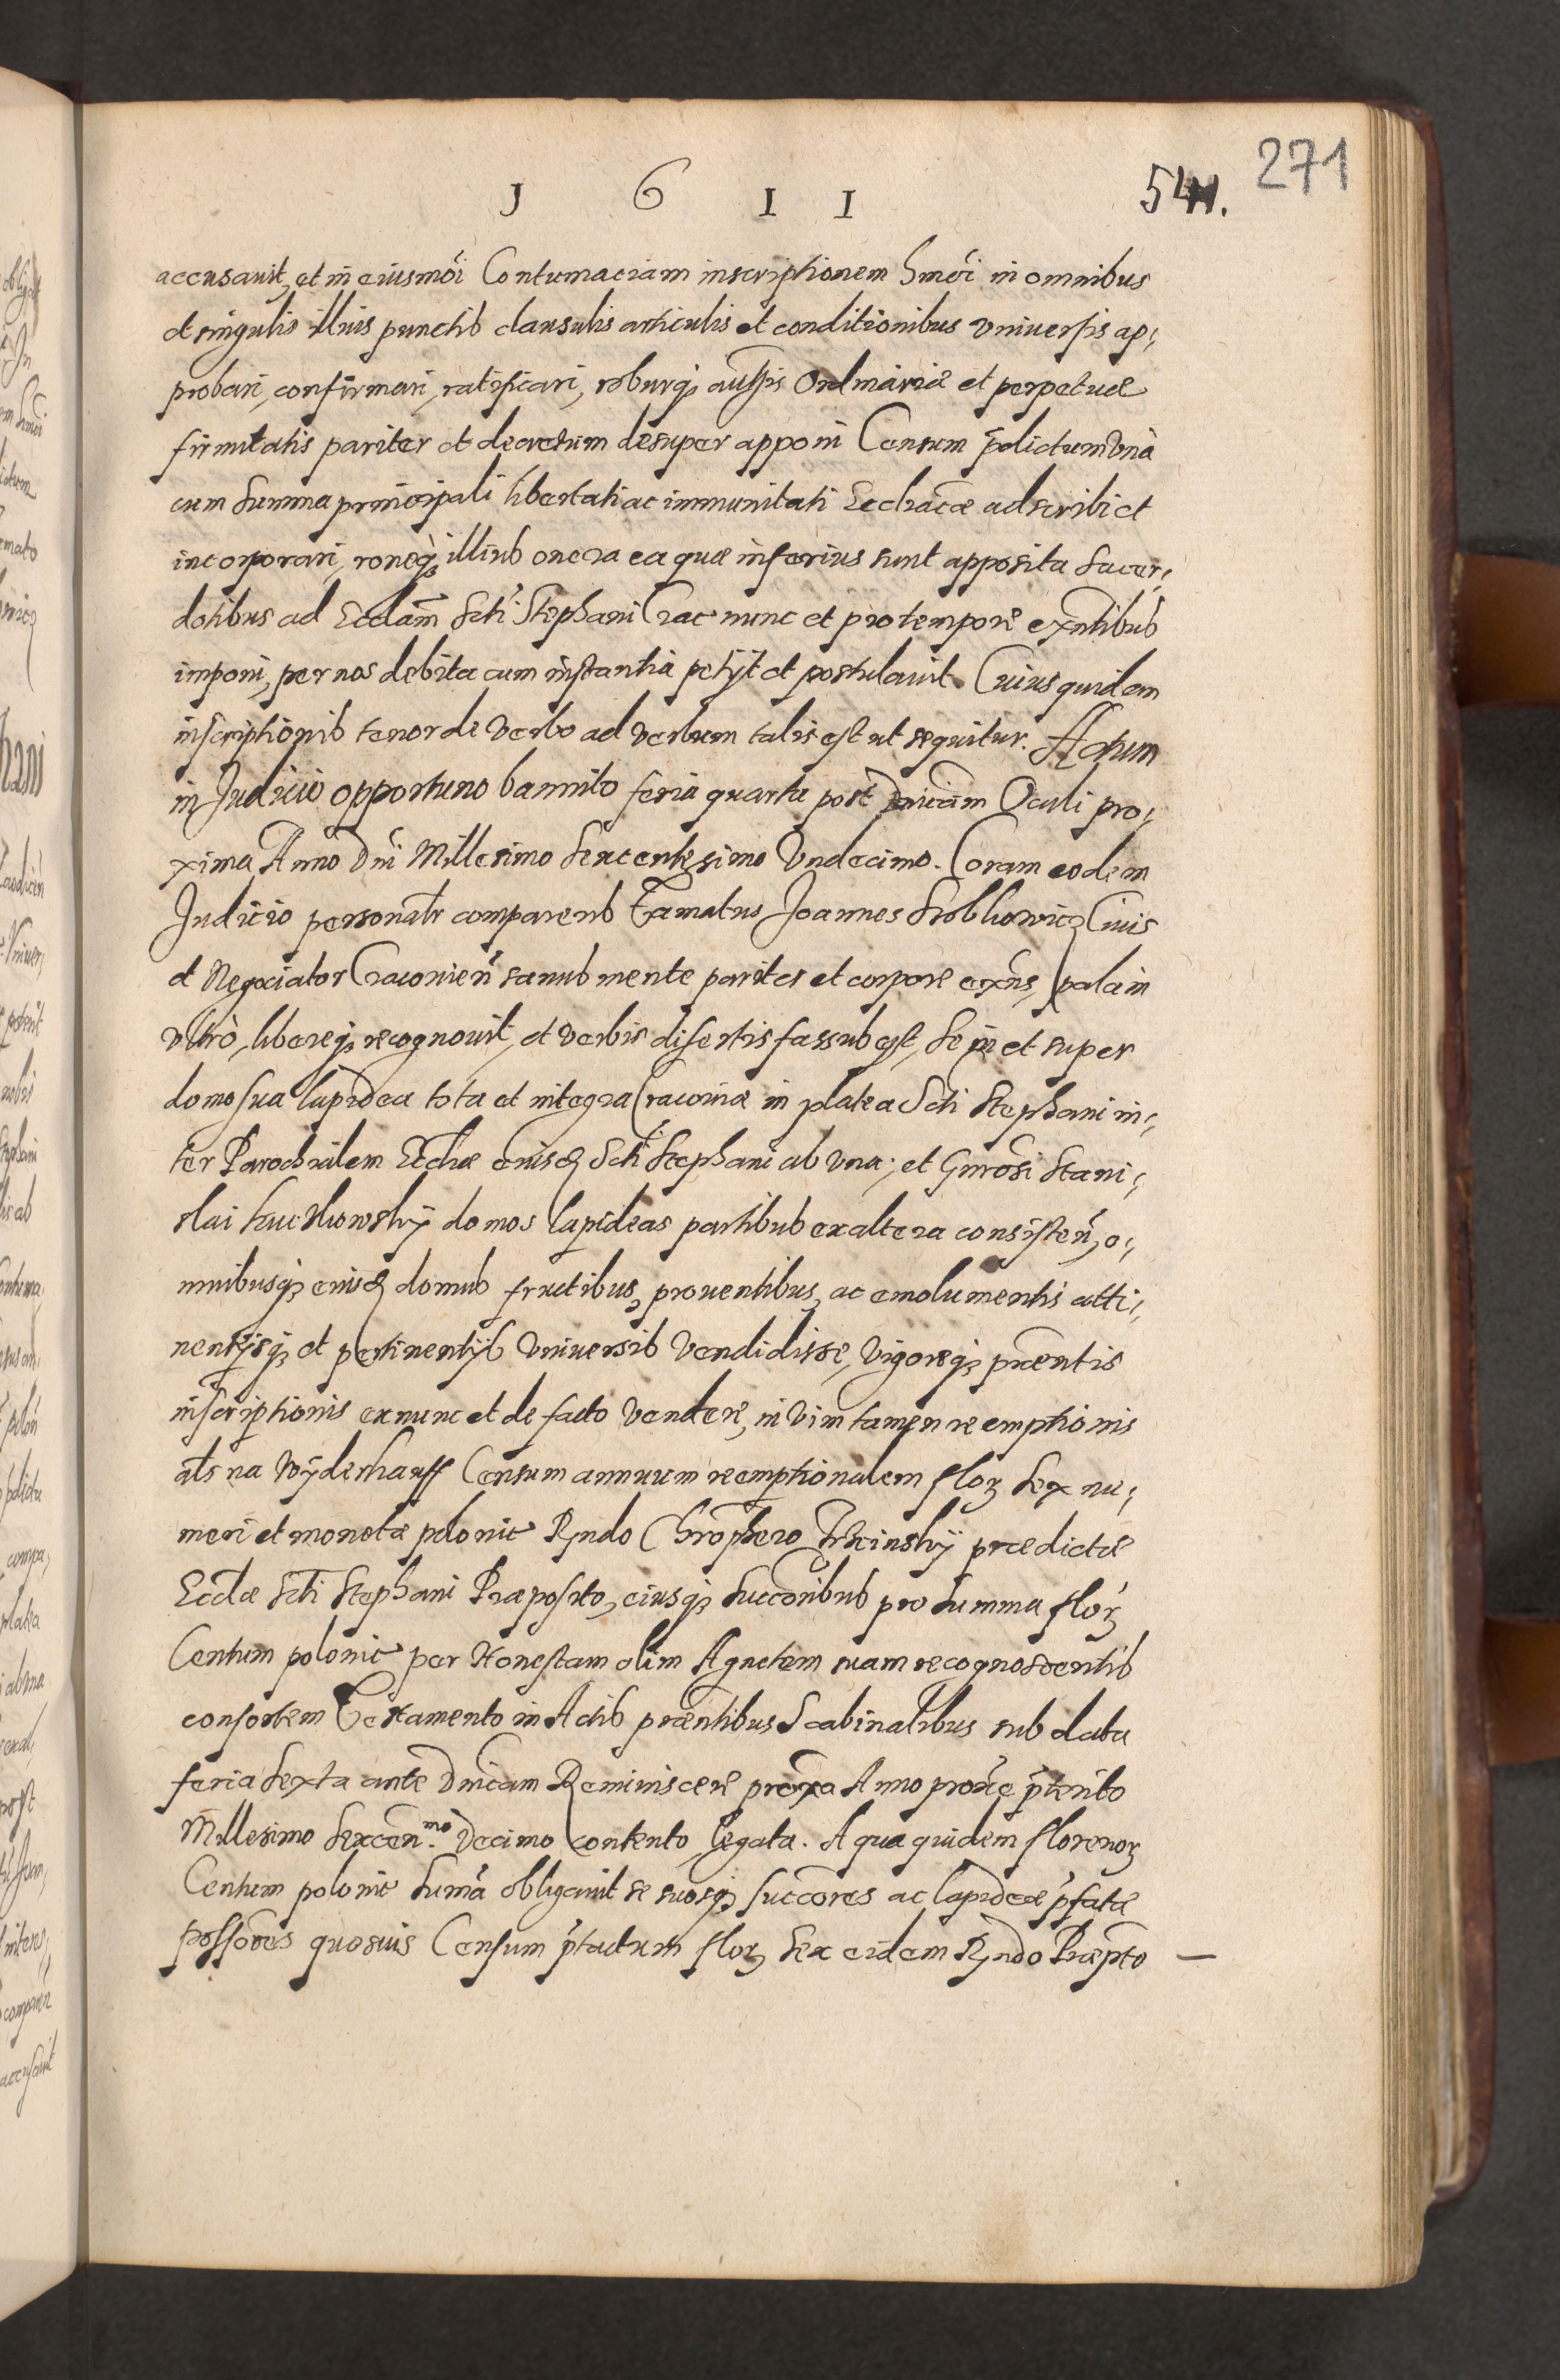 1 6 1 1
271
accusavit, et in eiusmōi Contumaciam inscriptionem hmōi in omnibus
et singulis illius punctis clausulis articulis et conditionibus Vniversis ap,
probari, confirmari, ratificari, roburq; autthis Ordinariæ et perpetuæ
firmitatis pariter et decretum desuper apponi Censum p̄dictum Vnà
cum Summa principali libertati ac immunitati Eccliacæ adscribi et
incorporari, roneq; illius onera ea quæ inferius sunt apposita Sacer,
dotibus ad Ecclam̄ Scti Stephani Crac nunc et pro tempore exn̄tibus
imponi, per nos debita cum instantia petijt et postulavit. Cuius quidem
inscriptionis tenor de Verbo ad Verbum talis est ut sequitur. Actum
in Judicio opportuno bannito feria quarta post Dnicam Oculi pro,
xima Anno Dn̄i Millesimo Sexcentesimo Vndecimo. Coram eodem
Judicio personalr comparens Famatus Joannes Srobkowicz Civis
et Negociator Cracovien̄ sanus mente pariter et corpore exn̄s, palam
ultrò, libereq; recognovit, et verbis disertis fassus est, Se in et super
domo sua lapidea tota et integra Cracoviæ in platea Scti Stephani in,
ter Parochialem Eccliæ eiusd Scti Stephani ab Vna, et Gnrosi Stani,
slai domos lapideas partibus ex altera consisten̄, o,
mnibusq; eiusd domus fructibus, proventibus, ac emolumentis atti,
nentijsq; et pertinentijs Vniversis Vendidisse, Vigoreq; præntis
inscriptionis ex nunc et de facto Vendere, in Vim tamen reemptionis
als na Wÿderkauff Censum annuum reemptionalem flor Sex nu,
meri et monetæ polonic Rndo Chrophero Trzcinskÿ prædictæ
Ecclæ Scti Stephani Præposito, eiusq; Succoribus pro Summa flor
Centum polonic per Honestam olim Agnetem suam recognoscentis
consortem Testamento in Actis præntibus Scabinalibus sub data
feria Sexta ante Dnicam Reminiscere proxa Anno proxe p̄terito
Millesimo Sexcen.mo Decimo contento, legata. A qua quidem florenor
Centum polonic Sumā obligavit se suosq; succores ac lapideæ p̄fatæ
possores quosvis Censum p̄tactum flor Sex eidem Rndo Præpto —